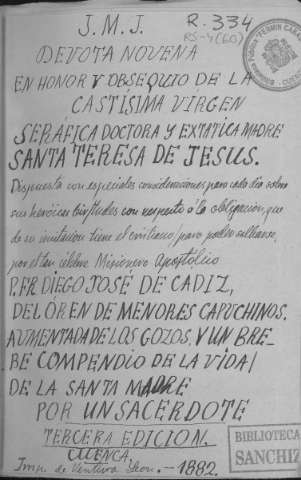 J. M. J.
R. 334
RS-4(60)
DEVOTA NOVENA
EN HONOR Y OBSEQUIO DE LA
CASTÍSIMA VÍRGEN
SERÁFICA DOCTORA Y EXTATICA MADRE
SANTA TERESA DE JESUS.
Dispuesta con especiales consideraciones para cada dia sobre
sus heróicas birtudes con respecto á la obligacion, que
de su imitacion tiene el cristiano, para poder salbarse,
por el tan célebre Misionero Apostólico
P. FR. DIEGO JOSÉ DE CADIZ,
DEL ÓREN DE MENORES CAPUCHINOS.
AUMENTADA DE LOS GOZOS, Y UN BRE-
BE COMPENDIO DE LA VIDA
DE LA SANTA MADRE
POR UN SACERDOTE
TERCERA EDICION.
CUENCA.
Imp. de Ventura Leon. - 1882.
BIBLIOTECA
SANCHIZ